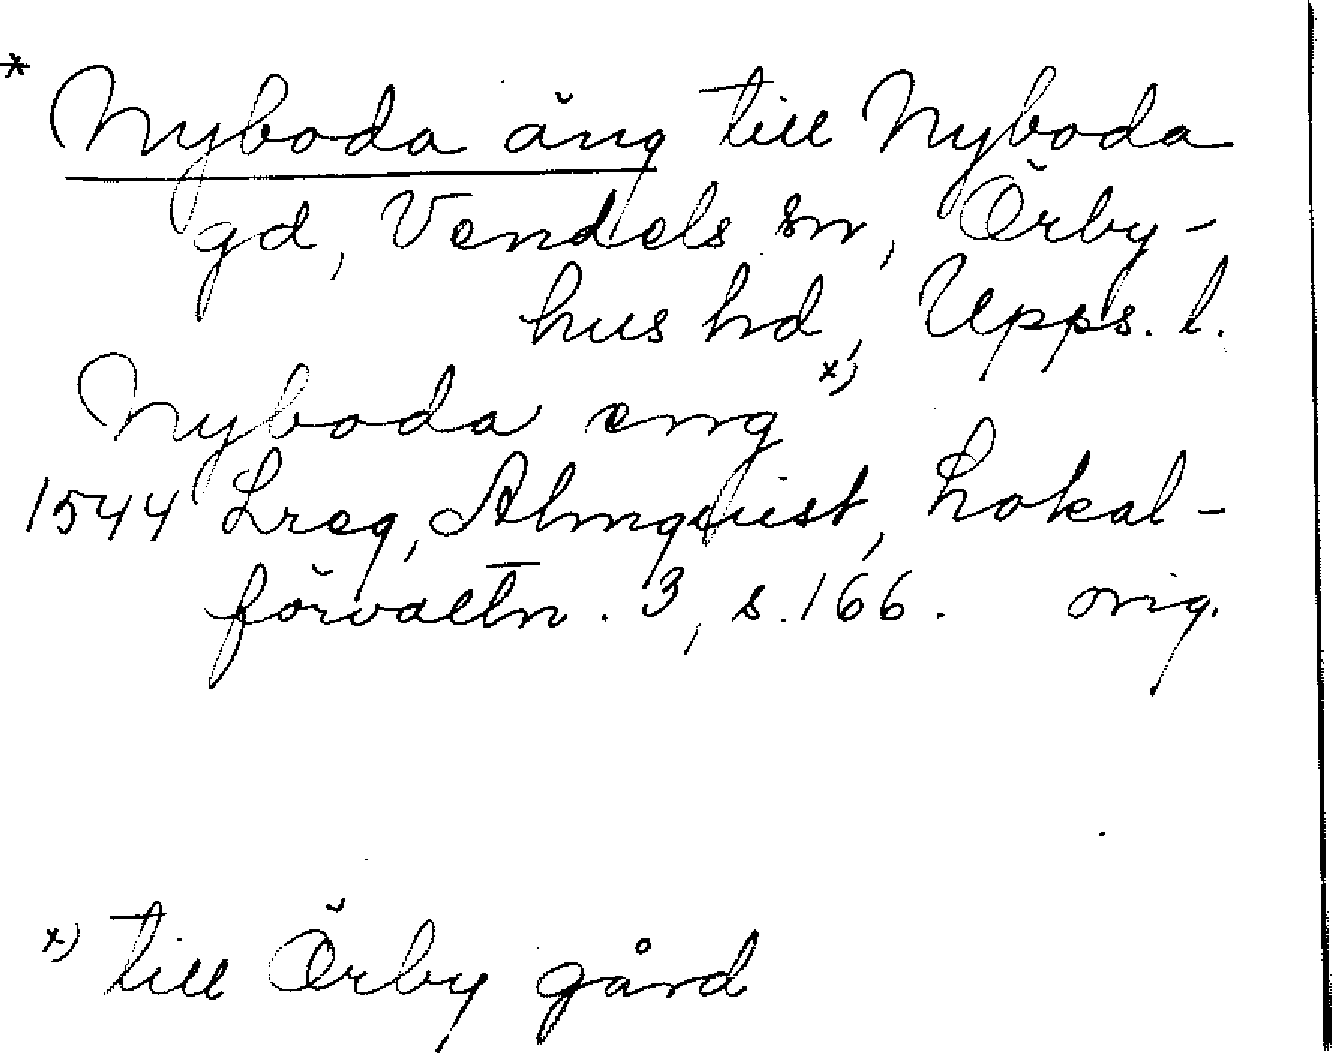 * Nyboda äng till Nyboda
gd, Vendels sn, Örby-
hus hd, Upps. l.
Nyboda eng x)
1544 Lreg, Almquist, Lokal-
förvaltn. 3, s. 166. orig.
x) till Örby gård